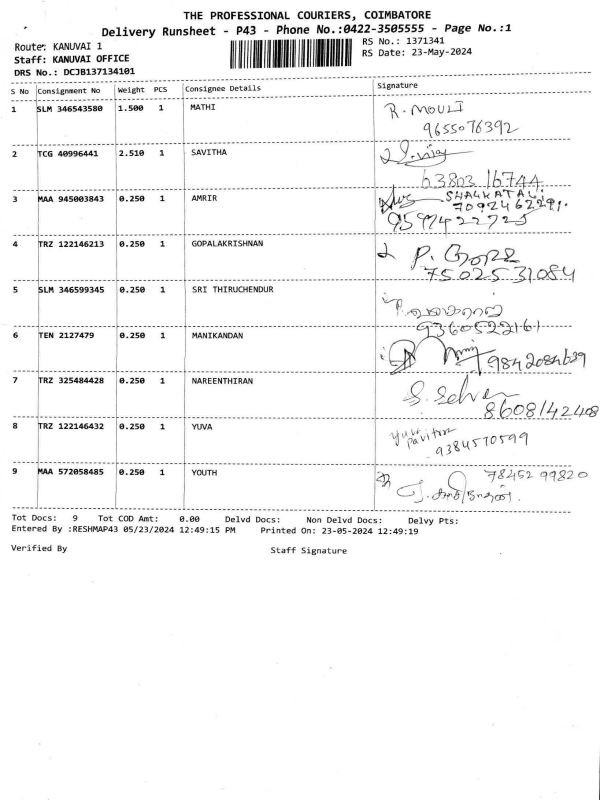 THE PROFESSIONAL COURIERS, COIMBATORE
Delivery Runsheet - P43 - Phone No.:0422-3505555 - Page No.:1
Route: KANUVAI 1
RS No.: 1371341
Staff: KANUVAI OFFICE
RS Date: 23-May-2024
DRS No.: DCJB137134101
S No Consignment No Weight PCS Consignee Details Signature
1 SLM 346543580 1.500 1 MATHI R. MOULI
9655076392
2 TCG 40996441 2.510 1 SAVITHA
63803 16744
3 MAA 945003843 0.250 1 AMRIR
7092462291.
9597422725
4 TRZ 122146213 0.250 1 GOPALAKRISHNAN
75025 31084
5 SLM 346599345 0.250 1 SRI THIRUCHENDUR
9360522161
6 TEN 2127479 0.250 1 MANIKANDAN 9842084639
7 TRZ 325484428 0.250 1 NAREENTHIRAN S. Selva
8608142408
8 TRZ 122146432 0.250 1 YUVA Yuva
pavithra
9384570599
9 MAA 572058485 0.250 1 YOUTH 78452 99820
Tot Docs: 9 Tot COD Amt: 0.00 Delvd Docs: Non Delvd Docs: Delvy Pts:
Entered By :RESHMAP43 05/23/2024 12:49:15 PM Printed On: 23-05-2024 12:49:19
Verified By Staff Signature